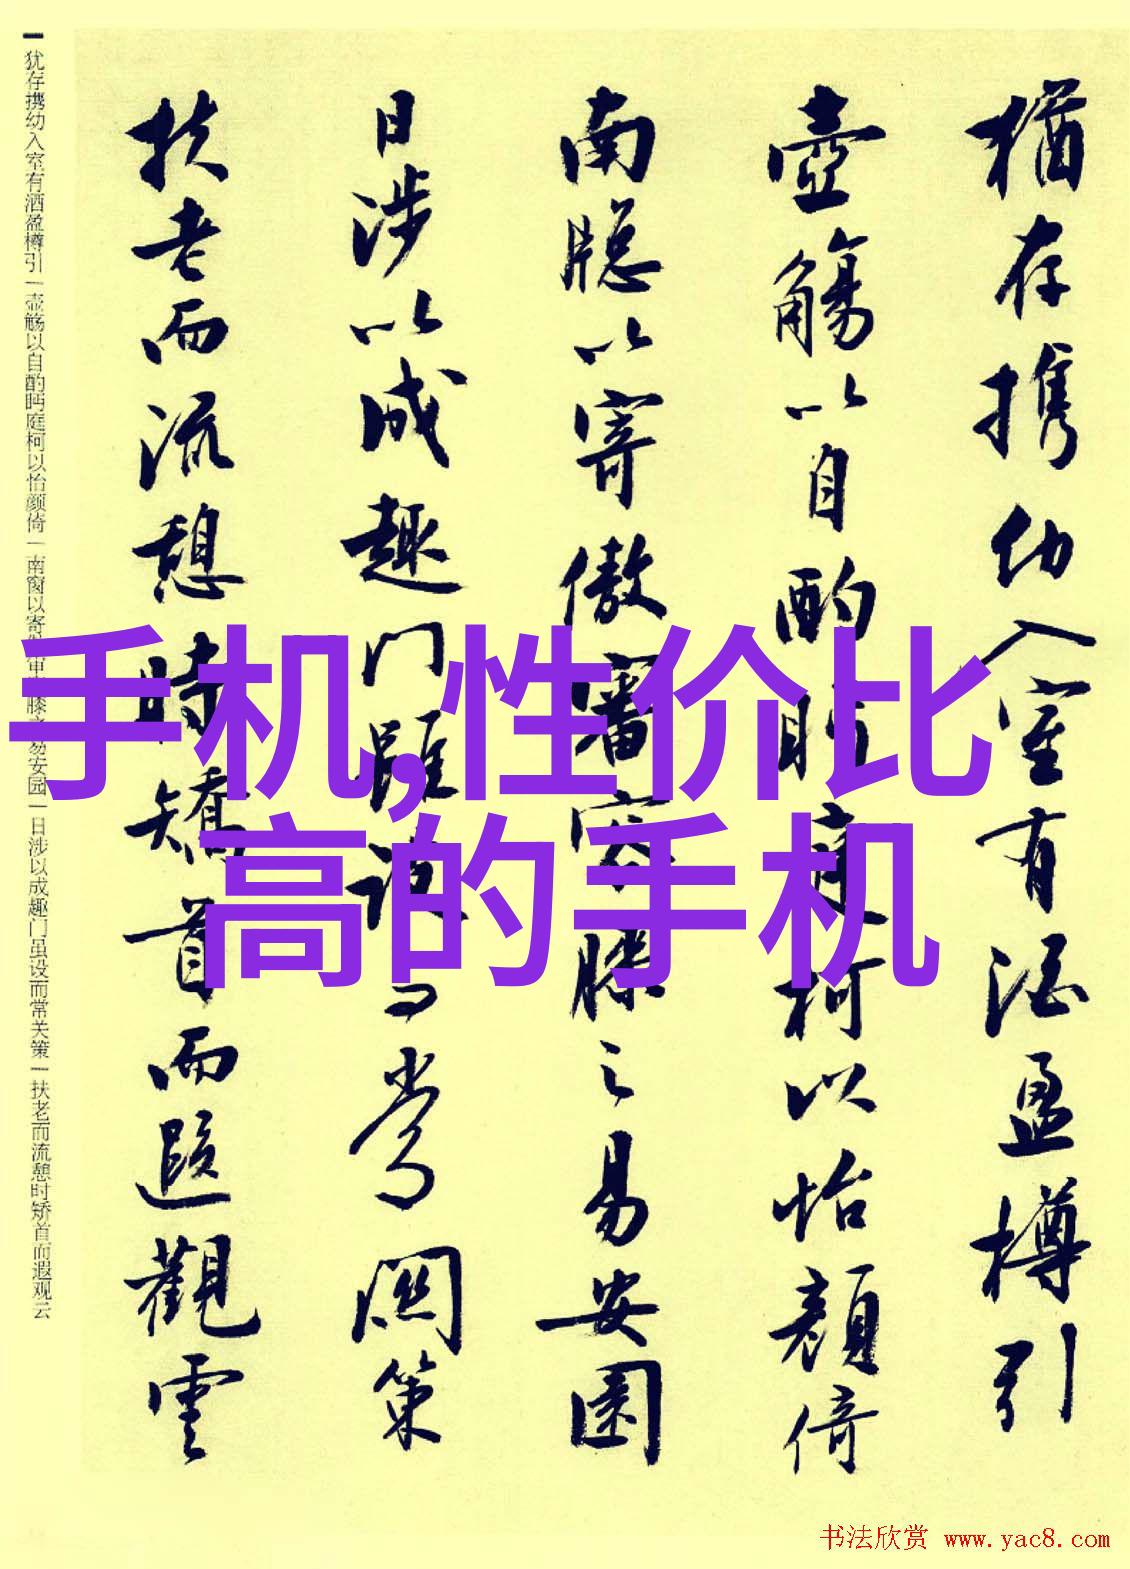 猶存携幼入室有酒盈樽引
壺觴以自酌眄庭柯以怡顔倚
南牕以寄傲審容膝之易安園
日涉以成趣门雖设而常関策
扶老而流憩時矯首而遐觀雲
犹存携幼入室有酒盈樽引一壶觞以自酌眄庭柯以怡颜倚一南窗以寄膝之易安园一日涉以成趣门虽设而常关策一扶老而流憩时矫首而遐观云
手机,性价比
高的手机
书法欣赏 www.yac8.com